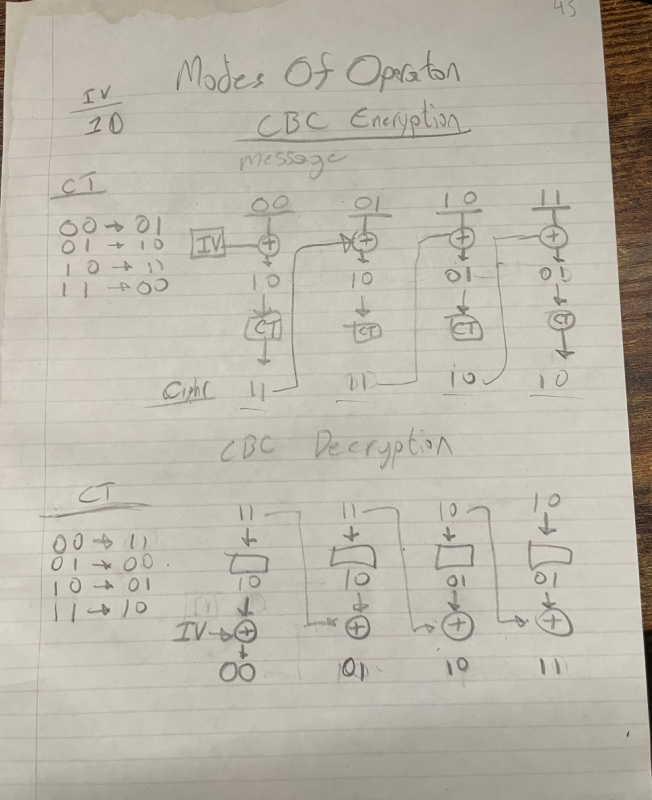 45
Modes Of Operaton
IV
10
CBC Encryption
message
CT
00 → 01
01 → 10
10 → 11
11 → 00
00 01 10 11
IV
10 10 01 01
CT CT CT CT
11 11 10 10
CBC Decryption
CT
00 → 11
01 → 00
10 → 01
11 → 10
11 11 10 10
10 10 01 01
IV
00 01 10 11